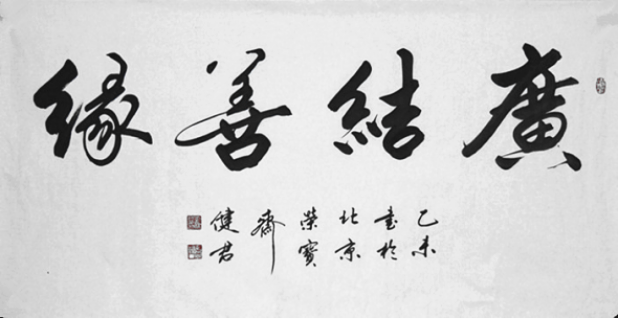 廣結善緣
乙未
書於
北京
榮寶
齋
健君